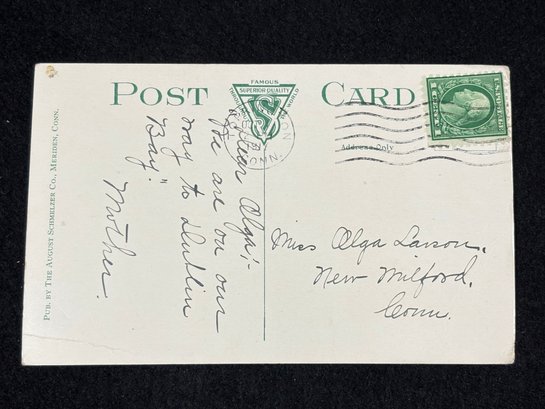 PUB. BY THE AUGUST SCHMELZER CO., MERIDEN, CONN.
POST CARD
FAMOUS
SUPERIOR QUALITY
THROUGHOUT THE WORLD
Address Only
Dear Olga:-
We are on our
way to Dublin
Bay"
Mother.
Miss Olga Larson,
New Milford,
Conn.
CONN.